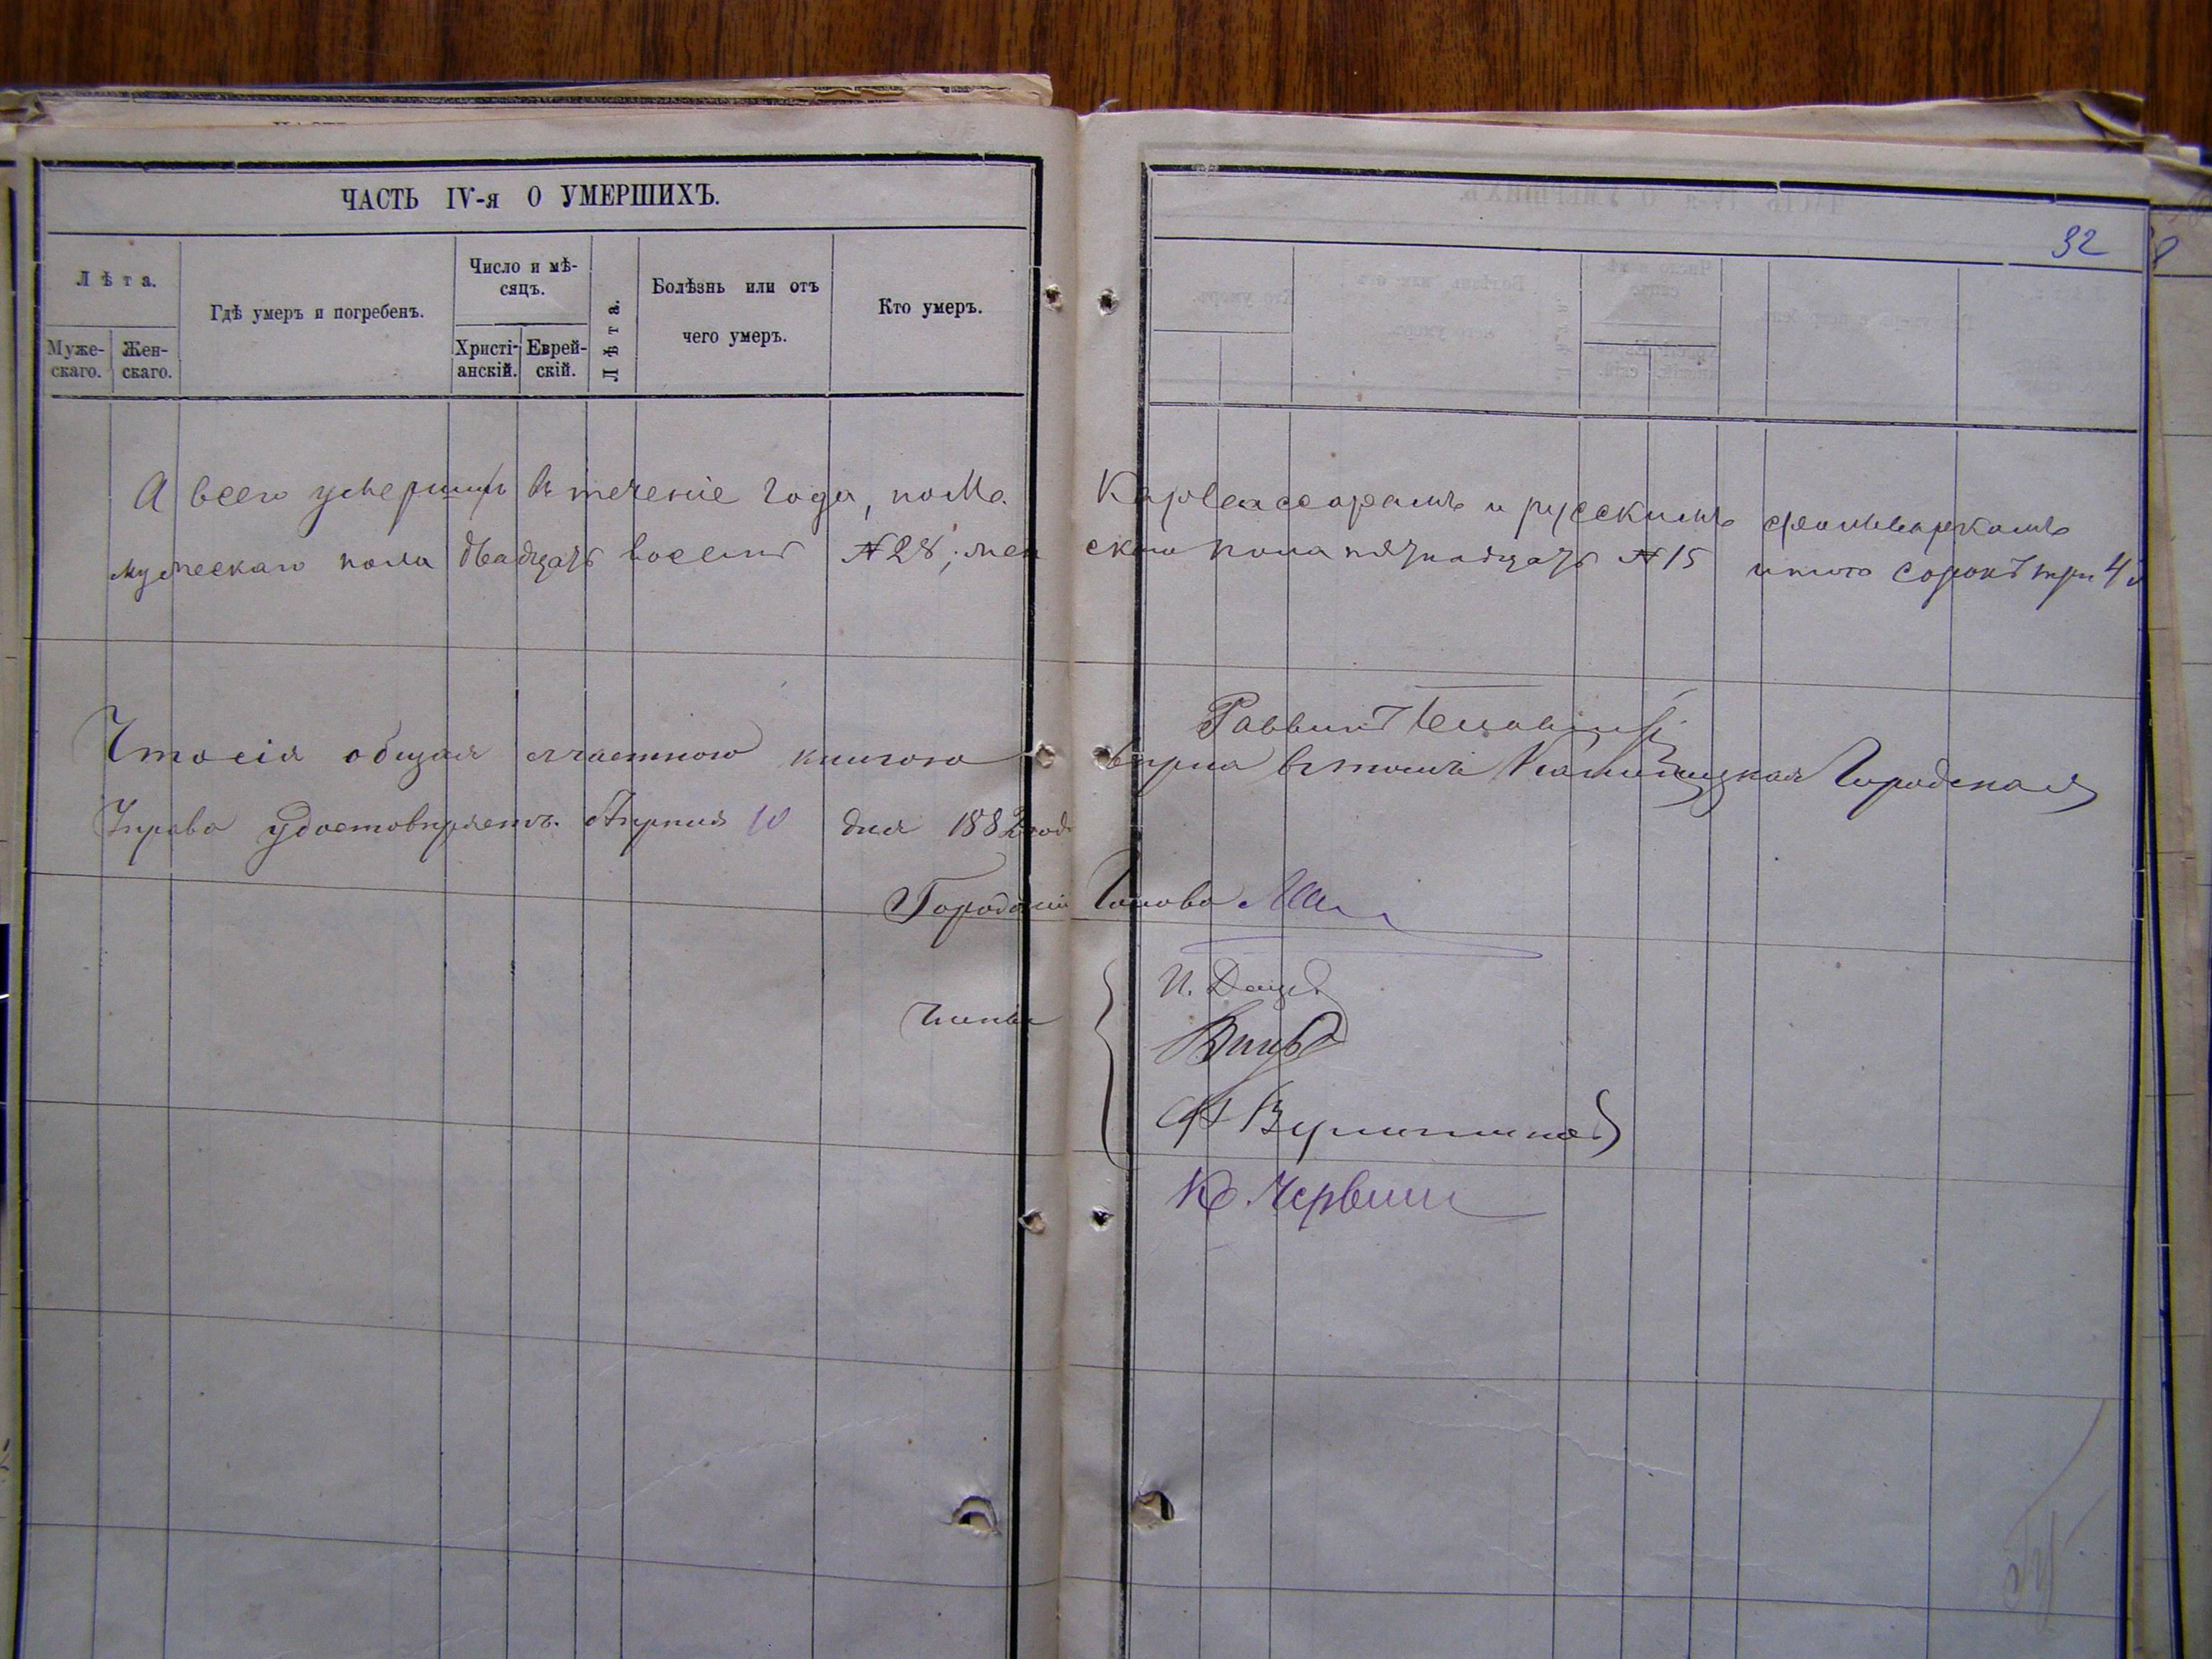 ЧАСТЬ IV-я О УМЕРШИХЪ.
32
Лѣта.
Мужескаго.
Женскаго.
Гдѣ умеръ и погребенъ.
Число и мѣсяцъ.
Христіанскій.
Еврейскій.
Лѣта.
Болѣзнь или отъ чего умеръ.
Кто умеръ.
А всего умершихъ въ теченіе года, по м. Карвассарамъ и русскимъ фольваркамъ
мужескаго пола двадцать восемь № 28; женскаго пола пятнадцать № 15 итого сорокъ три 43
Раввинъ
Что сія общая съ частною книгою вѣрна въ томъ Каменецкая Городская
Управа удостовѣряетъ. Апрѣля 10 дня 1882 года
Городской Голова
Члены
К. Червин